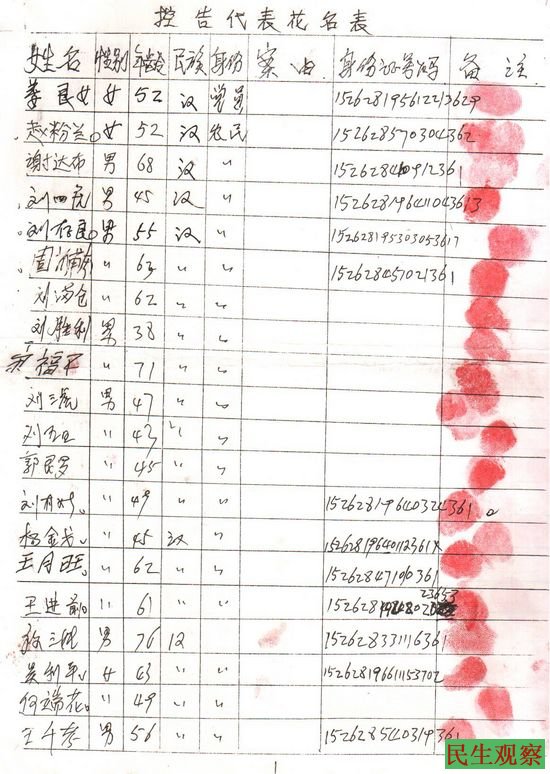 控告代表花名表
姓名 性别 年龄 民族 身份 案由 身份证号码 备注
姜良女 女 52 汉 党员 152628195612213629
赵粉兰 女 52 汉 农民 152628570304362
谢达布 男 68 汉 〃 152628410912361
刘四虎 男 45 汉 〃 152628196411043613
刘存良 男 55 汉 〃 152628195303053617
〃 63 〃 〃 152628451021361
刘满仓 〃 62 〃 〃
刘胜利 男 38 〃 〃
〃 71 〃 〃
刘三 男 47 〃 〃
刘 〃 43 〃 〃
郭 〃 45 〃 〃
刘 〃 49 〃 〃 15262819640324361
杨金 〃 45 汉 〃 1526281964012361X
王月旺 〃 62 〃 〃 1526284710361
王进前 〃 61 〃 〃 152628
男 76 汉 〃 152628331116361
吴利平 女 43 〃 〃 152628196611153702
何瑞花 〃 49 〃 〃
王 男 56 〃 〃 152628540319361
1
民生观察